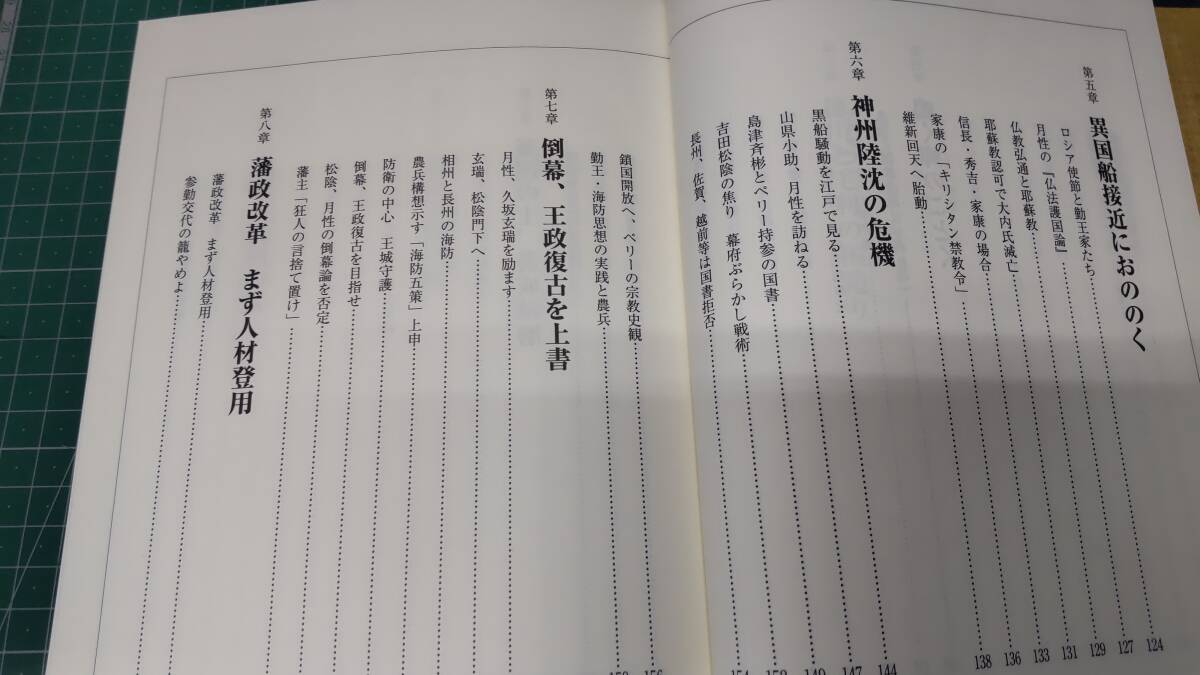 第五章 異国船接近におののく
ロシア使節と勤王家たち…………124
月性の『仏法護国論』…………127
仏教弘通と耶蘇教…………129
耶蘇教認可で大内氏滅亡…………131
信長・秀吉・家康の場合…………133
家康の「キリシタン禁教令」…………136
維新回天へ胎動…………138
第六章 神州陸沈の危機
黒船騒動を江戸で見る…………144
山県小助、月性を訪ねる…………147
島津斉彬とペリー持参の国書…………149
吉田松陰の焦り 幕府ぶらかし戦術…………
長州、佐賀、越前等は国書拒否…………154
鎖国開放へ、ペリーの宗教史観…………156
勤王・海防思想の実践と農兵…………
第七章 倒幕、王政復古を上書
月性、久坂玄瑞を励ます…………
玄瑞、松陰門下へ…………
相州と長州の海防…………
農兵構想示す「海防五策」上申…………
防衛の中心 王城守護…………
倒幕、王政復古を目指せ…………
松陰、月性の倒幕論を否定…………
藩主「狂人の言捨て置け」…………
第八章 藩政改革 まず人材登用
藩政改革 まず人材登用…………
参勤交代の籠やめよ…………